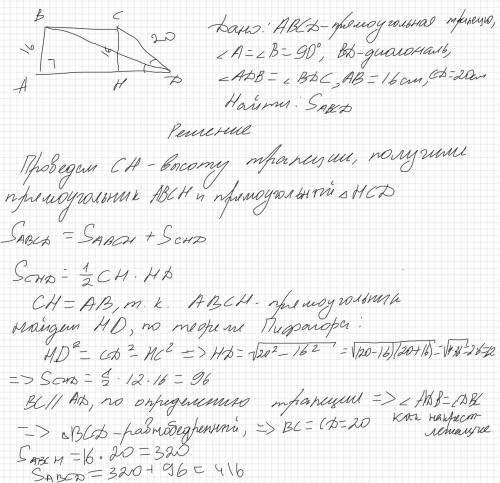 B C
20
16 16
A H D
Дано: ABCD-прямоугольная трапеция,
∠A=∠B=90°, BD-диагональ,
∠ADB=∠BDC, AB=16см, CD=20см
Найти: S_ABCD
Решение
Проведем CH-высоту трапеции, получим
прямоугольник ABCH и прямоугольный △HCD
S_ABCD = S_ABCH + S_CHD
S_CHD = 1/2 CH · HD
CH=AB, т.к. ABCH-прямоугольник
найдем HD, по теореме Пифагора:
HD² = CD² - HC² => HD = √20²-16² = √(20-16)(20+16) = √4·36 = 2·6=12
=> S_CHD = 1/2 · 12 · 16 = 96
BC∥AD, по определению трапеции => ∠ADB=∠DBC
как накрест
лежащие
=> △BCD-равнобедренный, => BC=CD=20
S_ABCH = 16 · 20 = 320
S_ABCD = 320+96 = 416